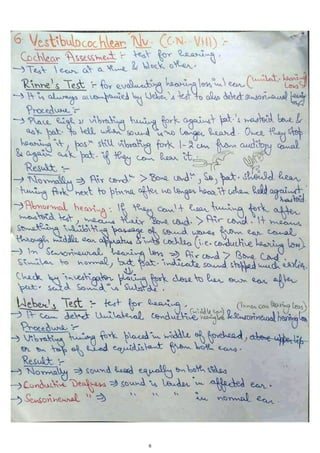 6. Vestibulocochlear Nv. (C.N. VIII) :-
Cochlear Assessment :- test for hearing.
→ Test 1 ear at a time & block other.
Rinne's Test :- for evaluating hearing loss in 1 ear (unilat. hearing loss)
→ It is always accompanied by Weber's test to also detect sensorineural hearing loss
Procedure :-
→ Place high υ vibrating tuning fork against pat's mastoid bone &
ask pat. to tell when sound is no longer heard. Once they stop
hearing it, posn still vibrating fork 1-2 cm from auditory canal
& again ask pat. if they can hear it.
Result :-
→ Normally ⇒ Air condn > Bone condn, So, pat. should hear
tuning fork next to pinna after no longer hear it when held against mastoid
→ Abnormal hearing : If they can't hear tuning fork after
mastoid test, means their Bone cond. > Air cond. It means
something inhibiting passage of sound waves from ear canal
through middle ear apparatus & into cochlea (i.e. conductive hearing loss)
→ In Sensorineural hearing loss ⇒ Air cond > Bone Cond
Similar to normal, but pat. indicate sound stopped much earlier.
Check by investigator placing fork close to her own ear after
pat. said sound is subside.
Weber's Test :- test for hearing.
→ It can detect Unilateral conductive (middle ear) hearing loss & sensorineural hearing loss (Inner ear hearing loss)
Procedure :-
→ Vibrating tuning fork placed in middle of forehead, above upper lip
or on top of head equidistant from both ears.
Result :-
→ Normally ⇒ sound heard equally on both sides
→ Conductive Deafness ⇒ sound is louder in affected ear.
→ Sensorineural " ⇒ " " " in normal ear.
9